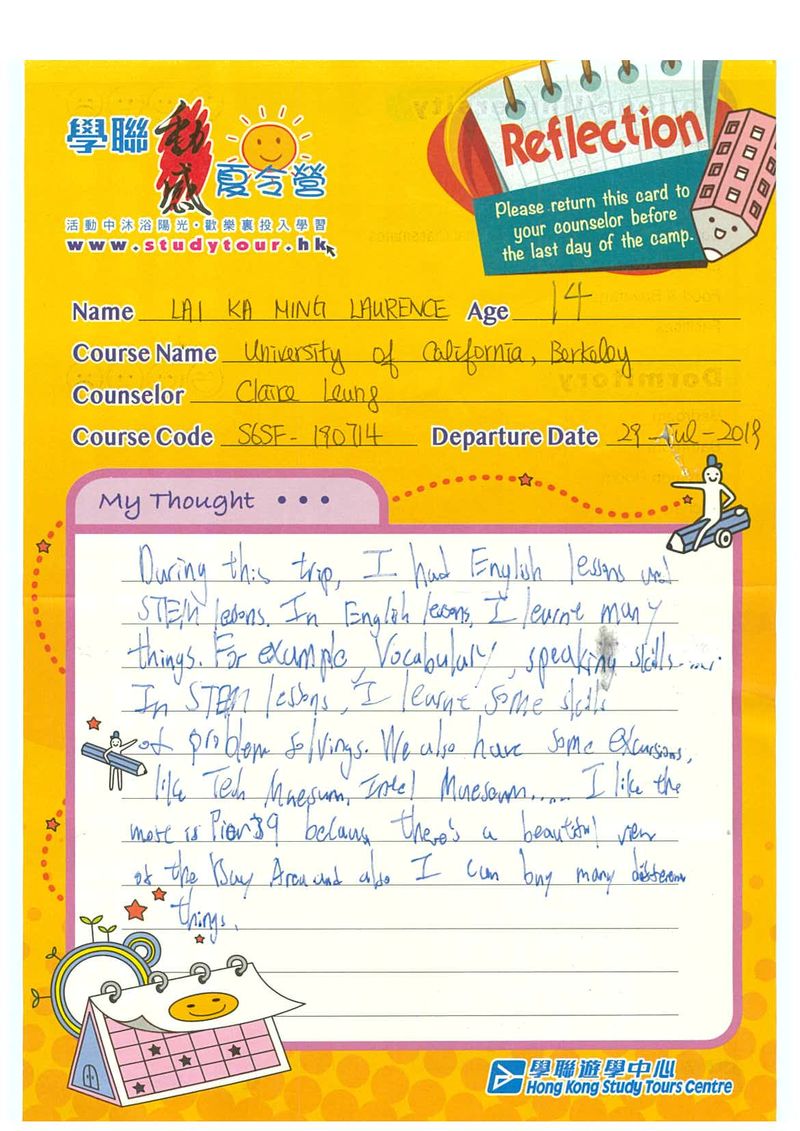 學聯 動感 夏令營
活動中沐浴陽光•歡樂裏投入學習
www.studytour.hk
Reflection
Please return this card to
your counselor before
the last day of the camp.
Name LAI KA MING LAURENCE Age 14
Course Name University of California, Berkeley
Counselor Claire Leung
Course Code S6SF-190714 Departure Date 29-Jul-2019
My Thought • • •
During this trip, I had English lessons and
STEM lessons. In English lessons, I learnt many
things. For example, Vocabulary, speaking skills......
In STEM lessons, I learnt some skills
of problem solvings. We also have some excursions,
like Tech Muesum, Intel Muesuem..... I like the
most is Pier39 because there's a beautiful view
of the Bay Area and also I can buy many different
things.
學聯遊學中心
Hong Kong Study Tours Centre